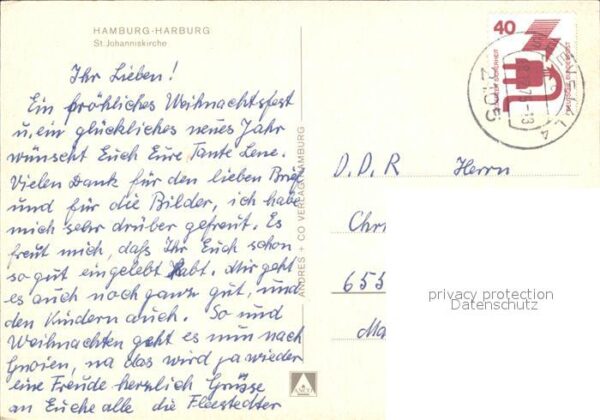 HAMBURG-HARBURG
St. Johanniskirche
Ihr Lieben!
Ein fröhliches Weihnachtsfest
u. ein glückliches neues Jahr
wünscht Euch Eure Tante Lene.
Vielen Dank für den lieben Brief
und für die Bilder, ich habe
mich sehr drüber gefreut. Es
freut mich, daß Ihr Euch schon
so gut eingelebt habt. Mir geht
es auch noch ganz gut, und
den Kindern auch. So und
Weihnachten geht es nun nach
Gnoien, na das wird ja wieder
eine Freude herzlich Grüsse
an Euche alle die Fleestedter
ANDRES + CO VERLAG HAMBURG
40
DEUTSCHE BUNDESPOST
2105
D.D.R Herrn
Chr
655
Ma
privacy protection
Datenschutz